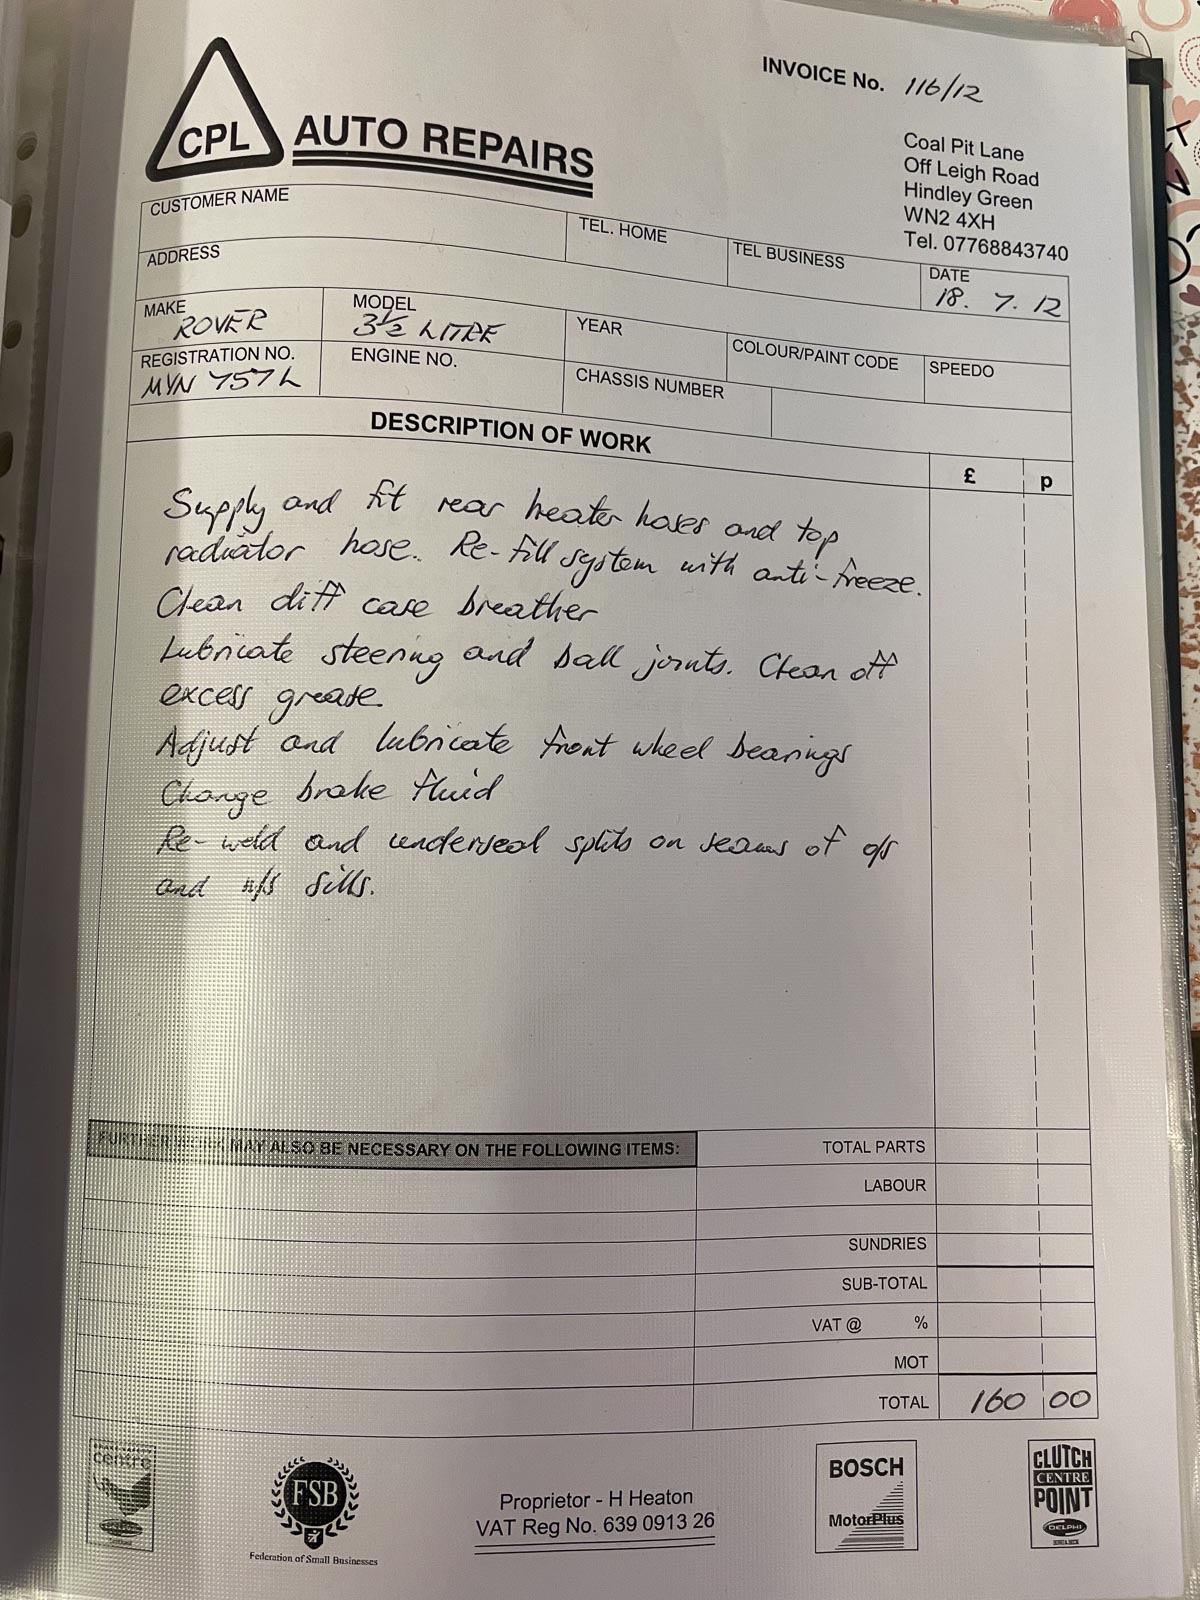 INVOICE No. 116/12
CPL AUTO REPAIRS
Coal Pit Lane
Off Leigh Road
Hindley Green
WN2 4XH
Tel. 07768843740
CUSTOMER NAME
TEL. HOME
TEL BUSINESS
ADDRESS
DATE
18. 7. 12
MAKE
ROVER
MODEL
3½ LITRE
YEAR
COLOUR/PAINT CODE
SPEEDO
REGISTRATION NO.
MVN 757L
ENGINE NO.
CHASSIS NUMBER
DESCRIPTION OF WORK
£ p
Supply and fit rear heater hoses and top
radiator hose. Re-fill system with anti-freeze.
Clean diff case breather
Lubricate steering and ball joints. Clean off
excess grease.
Adjust and lubricate front wheel bearings
Change brake fluid
Re-weld and underseal splits on seams of o/s
and n/s sills.
FURTHER WORK MAY ALSO BE NECESSARY ON THE FOLLOWING ITEMS:
TOTAL PARTS
LABOUR
SUNDRIES
SUB-TOTAL
VAT @ %
MOT
TOTAL 160 00
centre
FSB
Federation of Small Businesses
Proprietor - H Heaton
VAT Reg No. 639 0913 26
BOSCH
MotorPlus
CLUTCH
CENTRE
POINT
DELPHI